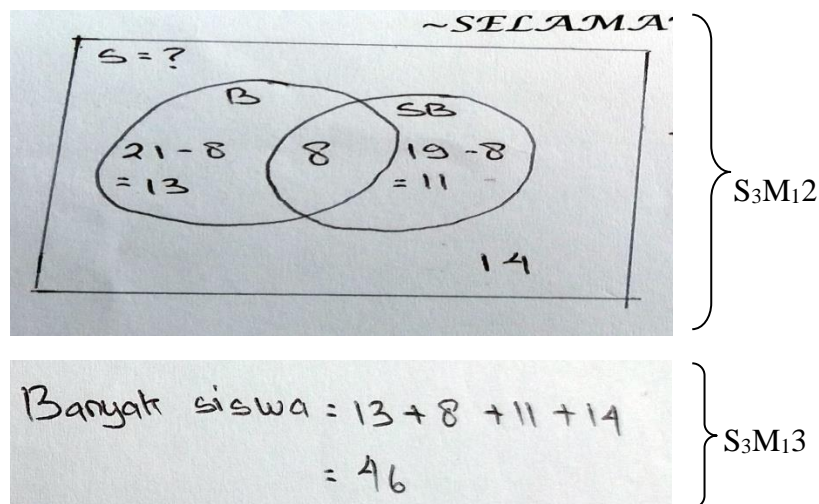 ~SELAMA
S = ?
B
SB
21 - 8
= 13
8
19 - 8
= 11
14
S₃M₁2
Banyak siswa = 13 + 8 + 11 + 14
= 46
S₃M₁3